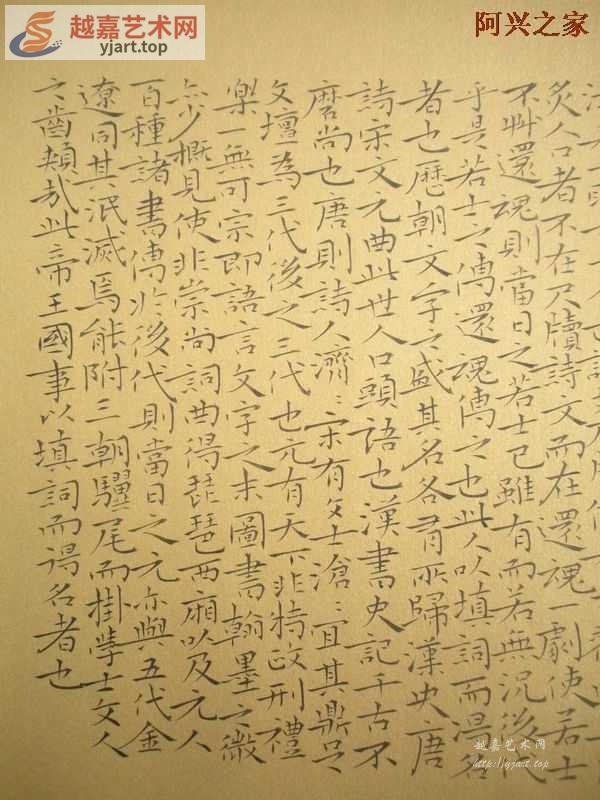 越嘉艺术网
yjart.top
阿兴之家
炙人口者不在尺牘詩文而在還魂一劇使若士
不艸還魂則當日之若士已雖有而若無況後代
乎是若士之傳還魂傳之也此人以填詞而得名
者也歷朝文字之盛其名各有所歸漢史唐
詩宋文元曲此世人口頭語也漢書史記千古不
磨尚也唐則詩人濟〻宋有文士滄〻宜其鼎足
文壇為三代後之三代也元有天下非特政刑禮
樂一無可宗即語言文字之末圖書翰墨之微
亦少概見使非崇尚詞曲得琵琶西廂以及元人
百種諸書傳於後代則當日之元亦與五代金
遼同其泯滅焉能附三朝驥尾而掛學士文人
之齒頰哉此帝王國事以填詞而得名者也
越嘉艺术网
http://yjart.top